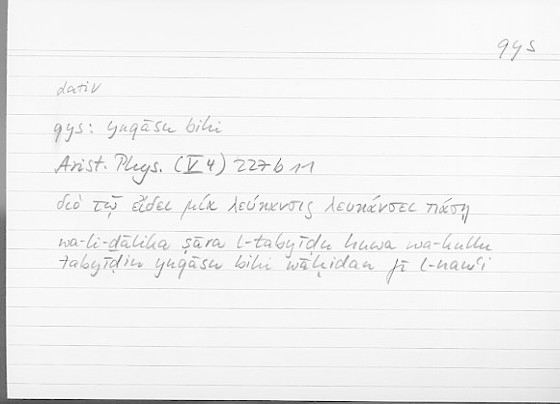 qys
dativ
qys: yuqāsu bihi
Arist. Phys. (V 4) 227 b 11
διὸ τῷ εἴδει μία λεύκανσις λευκάνσει πάσῃ
wa-li-ḏālika ṣāra l-tabyīḍu huwa wa-kullu
tabyīḍin yuqāsu bihi wāḥidan fī l-nawʿi